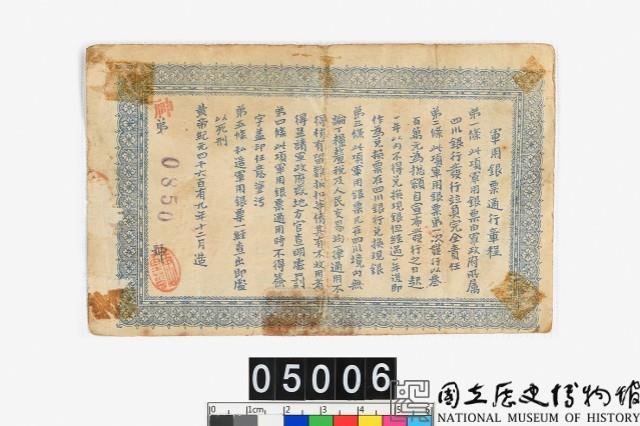 軍用銀票通行章程
第一條 此項軍用銀票由軍政府所屬
四川銀行發行註負完全責任
第二條 此項軍用銀票第一次發行以叁
百萬元為批額自宣布發行之日起
一年以內不得兌換現銀但經過一年後即
作為兌換票在四川銀行兌換現銀
第三條 此項軍用銀票凡在四川境內無
論丁糧釐稅及人民交易均一律通用不
得稍有留難折扣等情其有不收用者
得呈請軍政府或地方官查明處罰
第四條 此項軍用銀票通用時不得簽
字蓋印任意筆污
第五條 私造軍用銀票一經查出即處
以死刑
黃帝紀元四千六百有九年十二月 造
神
第 0850 號
05006
0 1cm 2 3 4 5 6
國立歷史博物館
NATIONAL MUSEUM OF HISTORY